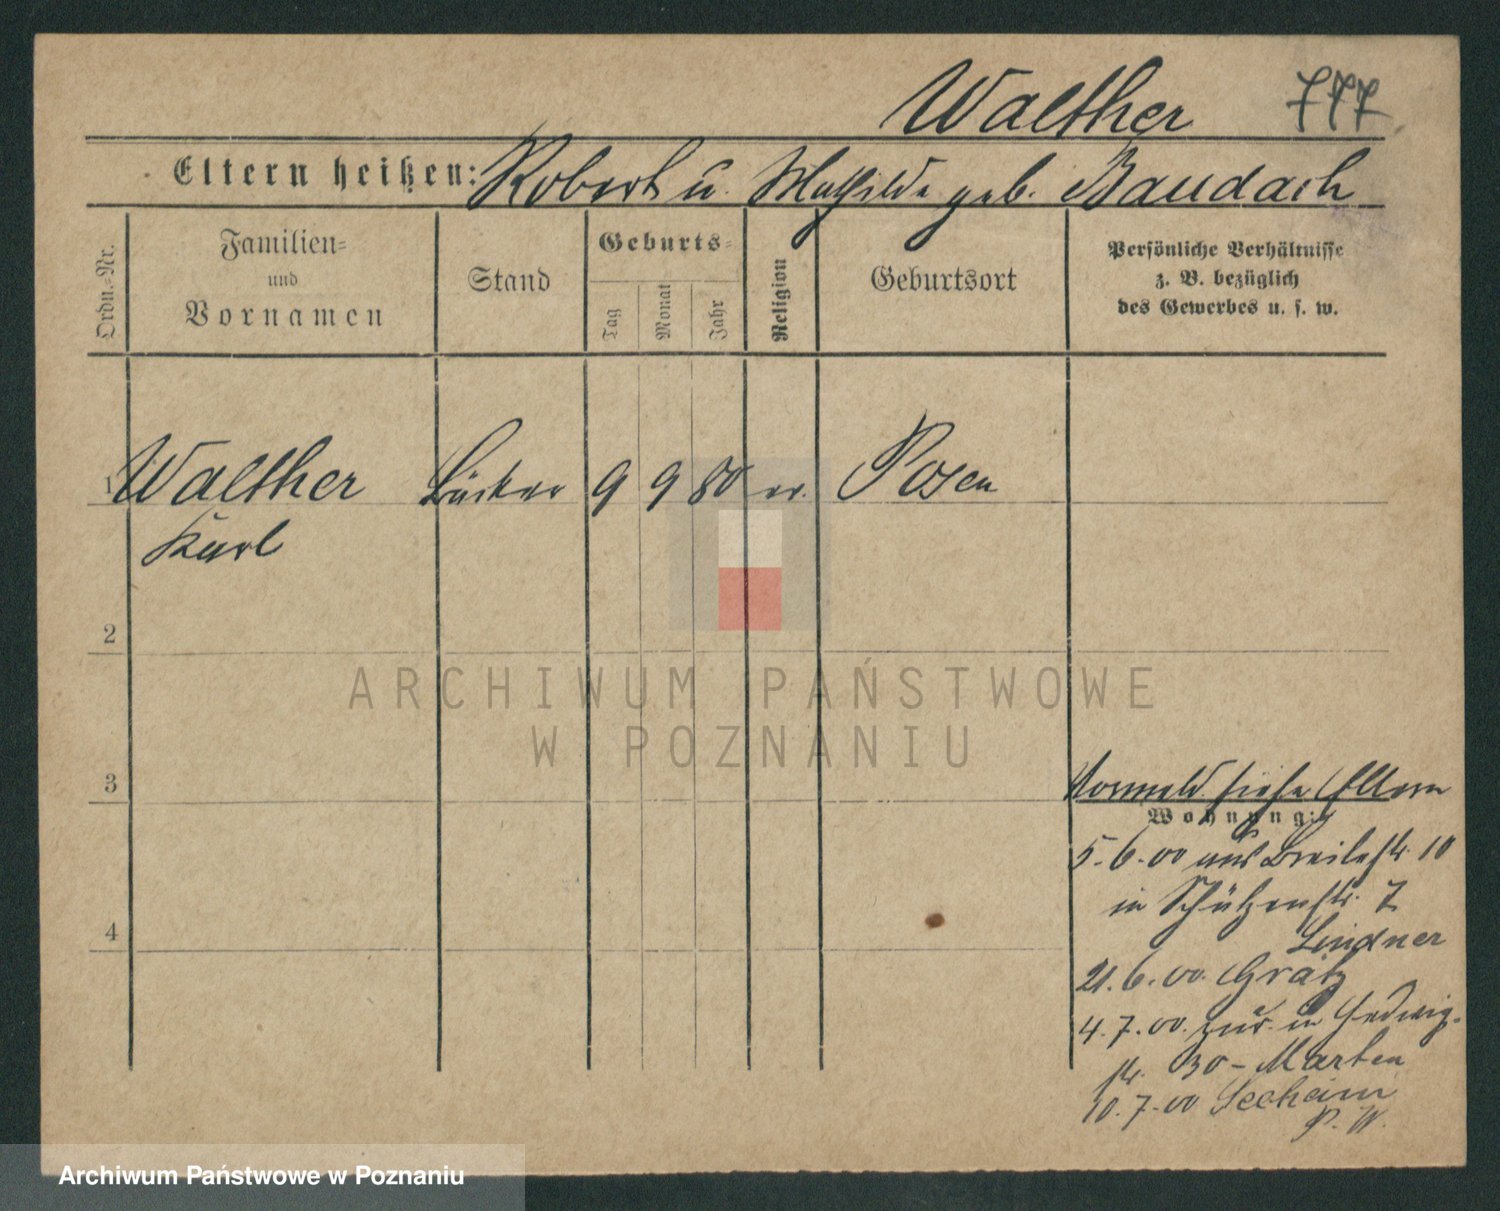 Walther 777
Eltern heißen: Robert u. Mathilde geb. Baudach
Ordn.-Nr.
Familien-
und
Vornamen
Stand
Geburts-
Tag
Monat
Jahr
Religion
Geburtsort
Persönliche Verhältnisse
z. B. bezüglich
des Gewerbes u. s. w.
1 Walther Bäcker 9 9 80 ev. Posen
Karl
2
3
4
Vormeld. siehe Eltern
Wohnung:
5.6.00 aus Breitestr. 10
in Schützenstr. 7
Lindner
21.6.00. Grätz
4.7.00. zur. in Hedwig-
str. 30 - Marten
10.7.00 Seeheim
P. W.
ARCHIWUM PAŃSTWOWE
W POZNANIU
Archiwum Państwowe w Poznaniu